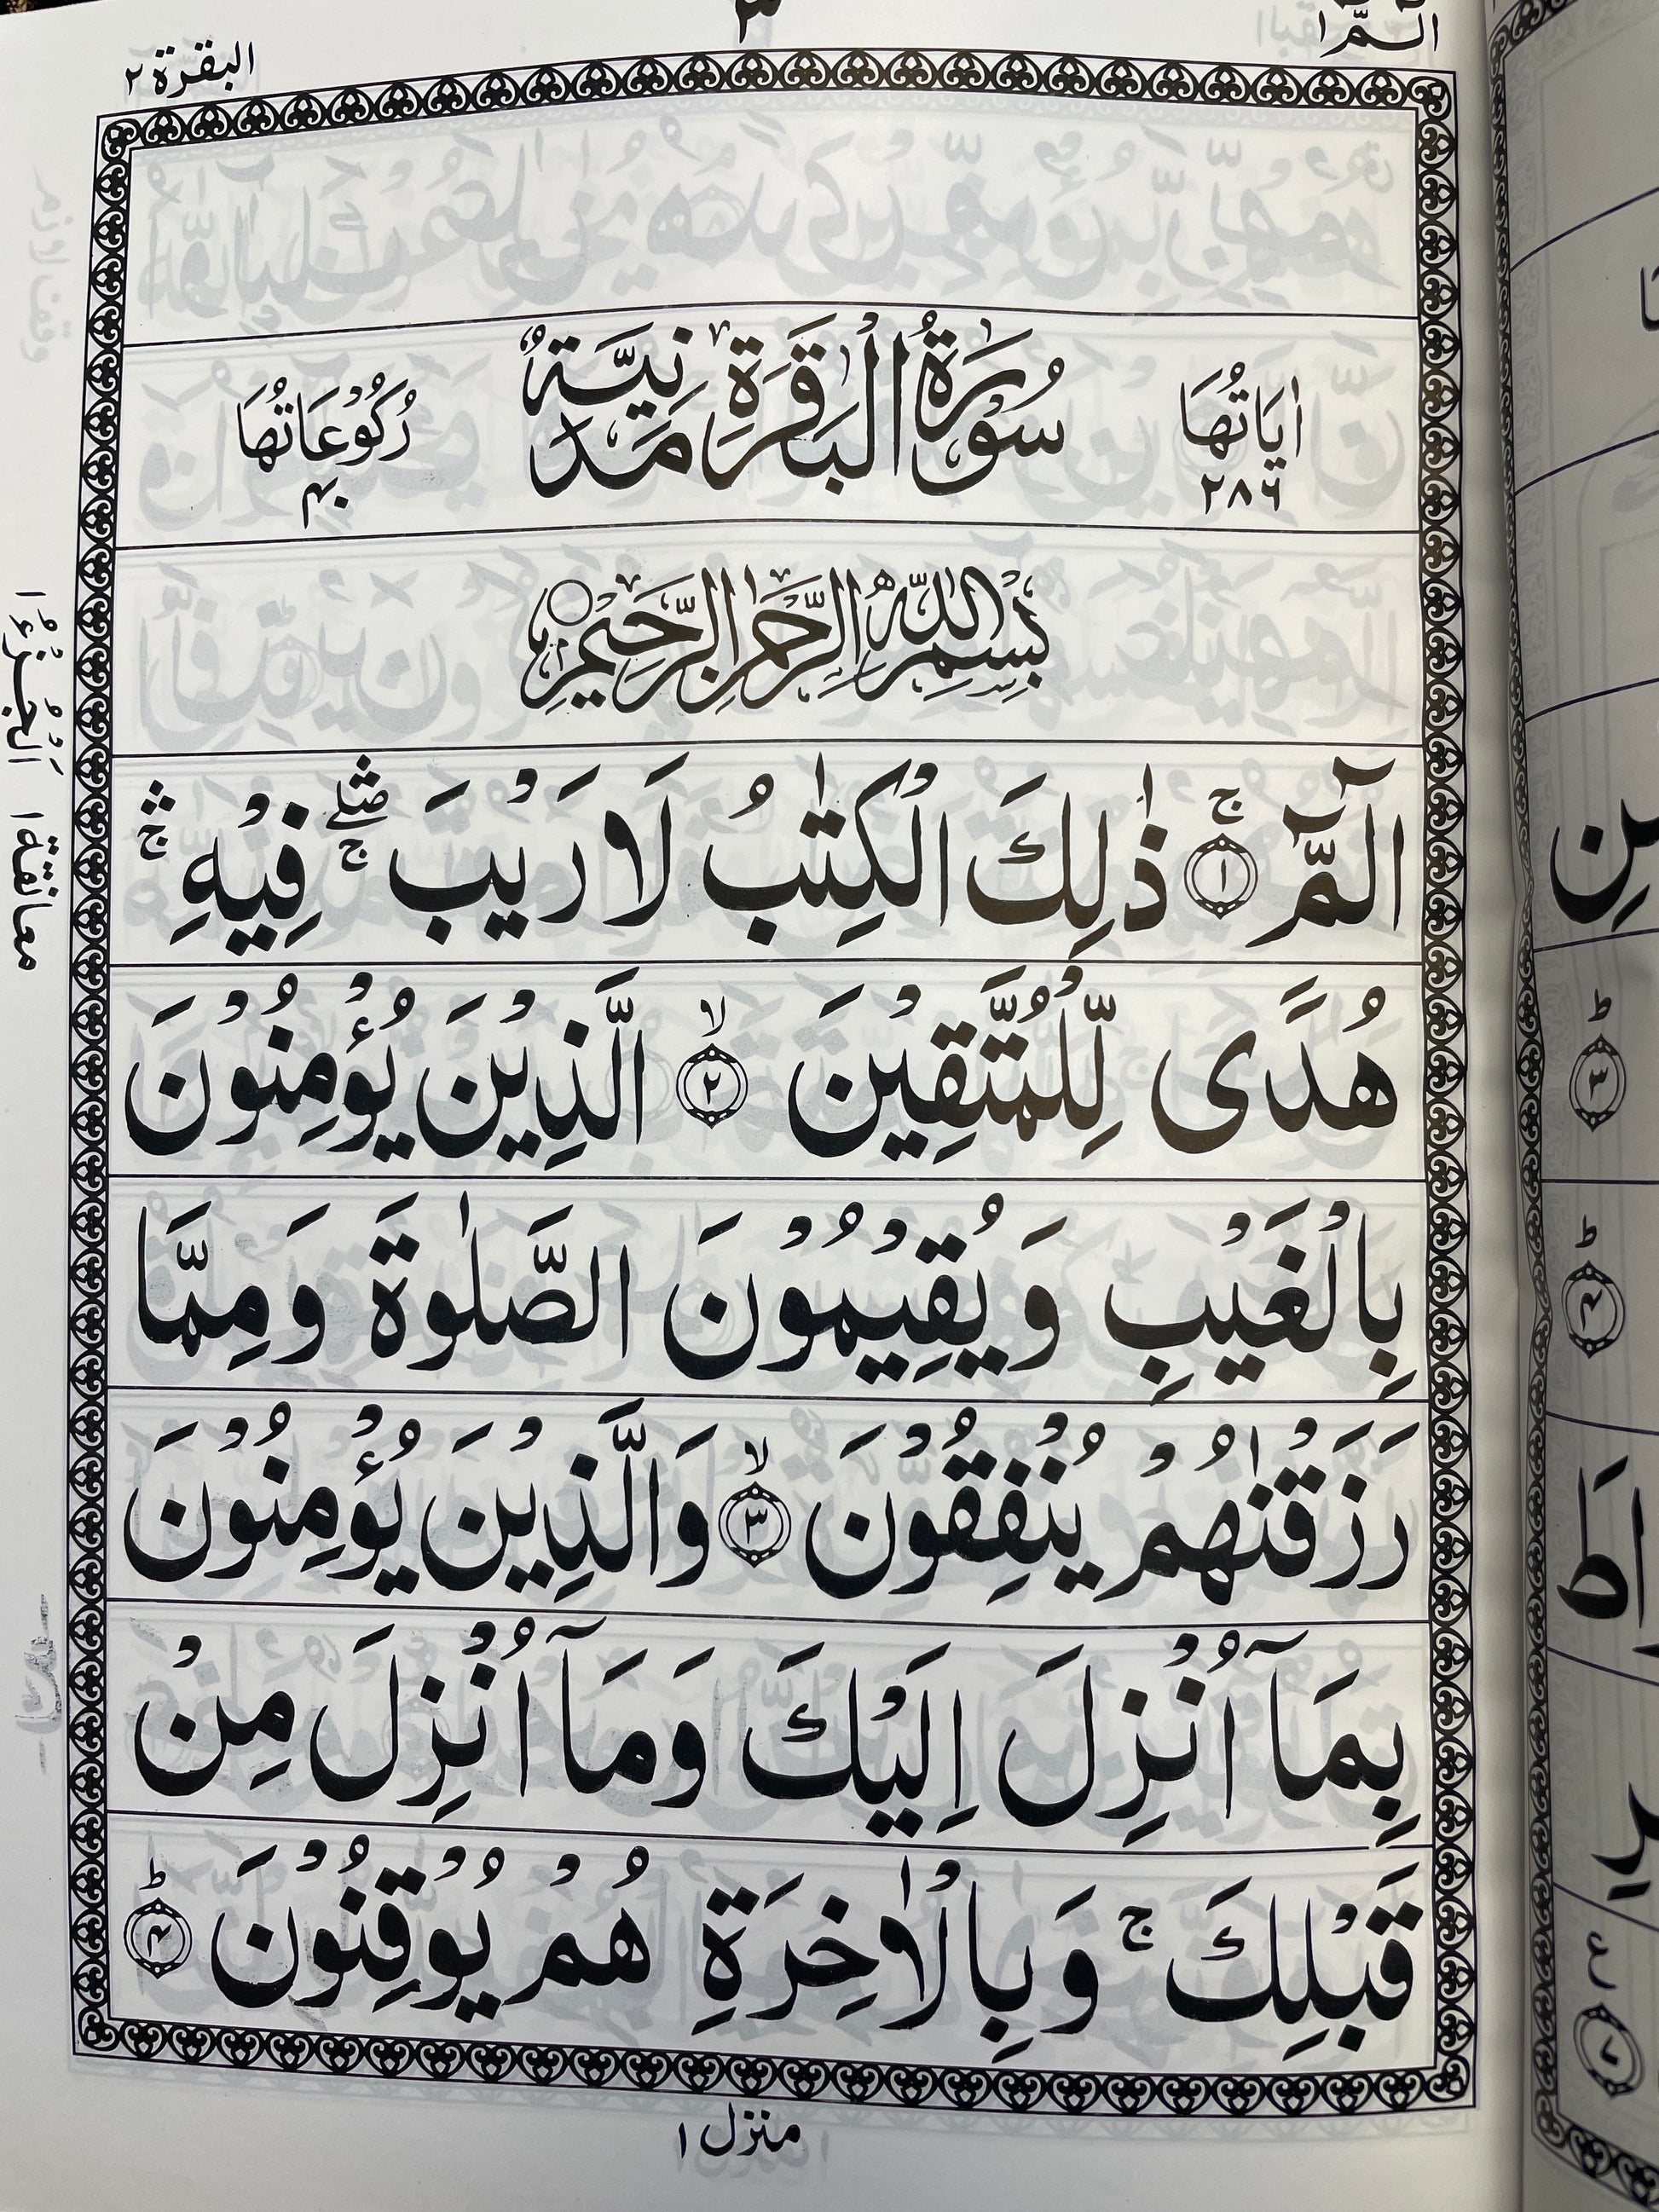 الٓمّٓ ١
٣
البقرة ٢
اٰيَاتُهَا ٢٨٦
سُوْرَةُ الْبَقَرَةِ مَدَنِيَّةٌ
رُكُوْعَاتُهَا ٤٠
بِسْمِ اللّٰهِ الرَّحْمٰنِ الرَّحِيْمِ
الٓمّٓ ۚ‏ ١ ذٰلِكَ الْكِتٰبُ لَا رَيْبَ ۛۖۚ فِيْهِ ۛۚ
هُدًى لِّلْمُتَّقِيْنَ ۙ‏ ٢ الَّذِيْنَ يُؤْمِنُوْنَ
بِالْغَيْبِ وَيُقِيْمُوْنَ الصَّلٰوةَ وَمِمَّا
رَزَقْنٰهُمْ يُنْفِقُوْنَ ۙ‏ ٣ وَالَّذِيْنَ يُؤْمِنُوْنَ
بِمَآ اُنْزِلَ اِلَيْكَ وَمَآ اُنْزِلَ مِنْ
قَبْلِكَ ۚ وَبِالْاٰخِرَةِ هُمْ يُوْقِنُوْنَ ؕ‏ ٤
اَلْجُزْءُ ١
معانقة ١
منزل ١